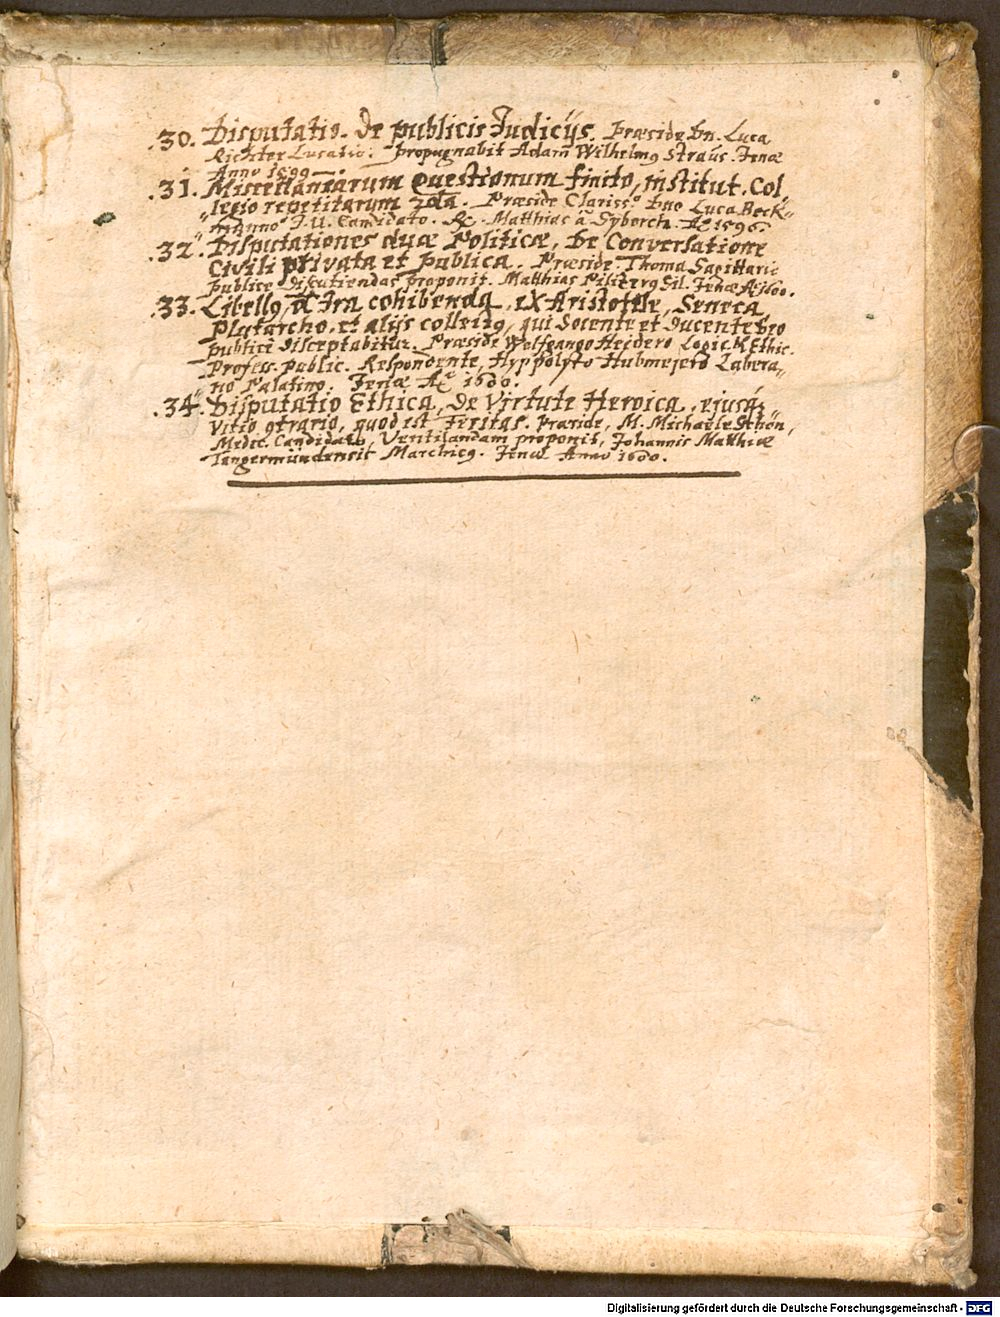 .30. Disputatio. De publicis Judicijs. Præside Dn. Luca
Richter Lusatio. propugnabit Adam Wilhelmus Straus. Jenæ
Anno 1599
.31. Miscellanearum Quæstionum finito, institut. Col„
„legio repetitarum 2da. Præside Clariss.o Dno Luca Beck„
„manno J.U. Candidato. Matthias â Syborch. Ao 1596.
.32. Disputationes duæ Politicæ, De Conversatione
Civili privata et publica. Præside Thoma Sagittario
publice discutiendas proponit. Matthias Pilicerus Sil. Jenæ Ao 1600.
.33. Libellus, de Ira cohibenda, ex Aristotele, Seneca
Plutarcho, et alijs collectus, qui Docente et Ducente Deo
publicè disceptabitur. Præside Wolfgango Heidero Logic. & Ethic.
Profess. public. Respondente, Hyppolyto Hubmejero Labera„
„no Palatino. Jenæ Ao 1600.
.34. Disputatio Ethica, De Virtute Heroica, ejusq;
Vitio contrario, quod est Feritas. Præside, M. Michaele Schön,
Medic. Candidato, Ventilandam proponit, Johannis Matthiæ
Tangermündensis Marchicus. Jenæ Anno 1600.
Digitalisierung gefördert durch die Deutsche Forschungsgemeinschaft - DFG